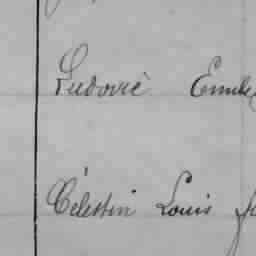 Ludovic Emile
Célestin Louis